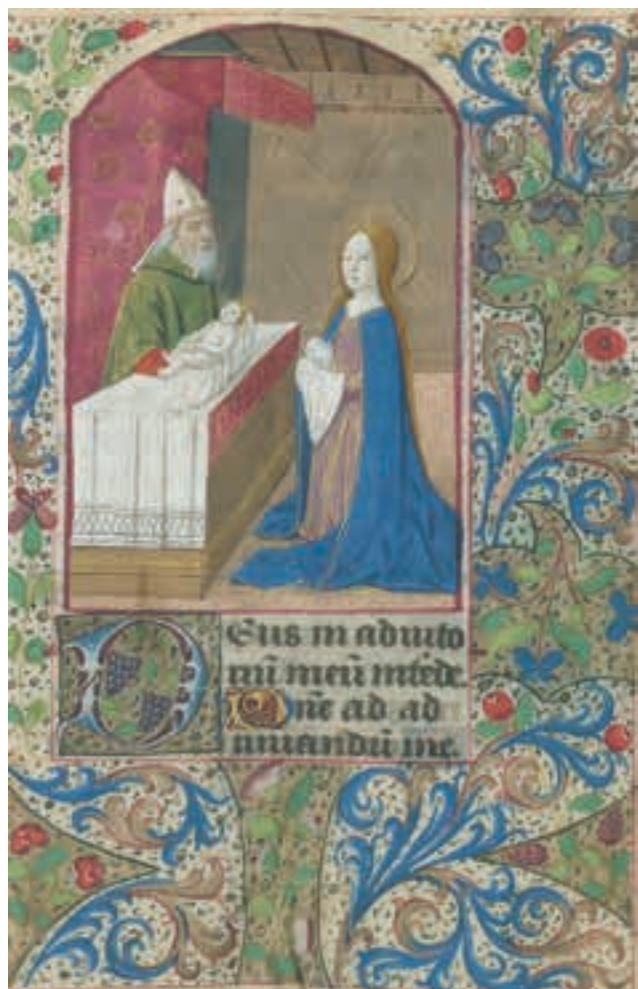 Deus in adiuto
riū meū intēde.
Dn̄e ad ad
iuuandū me.